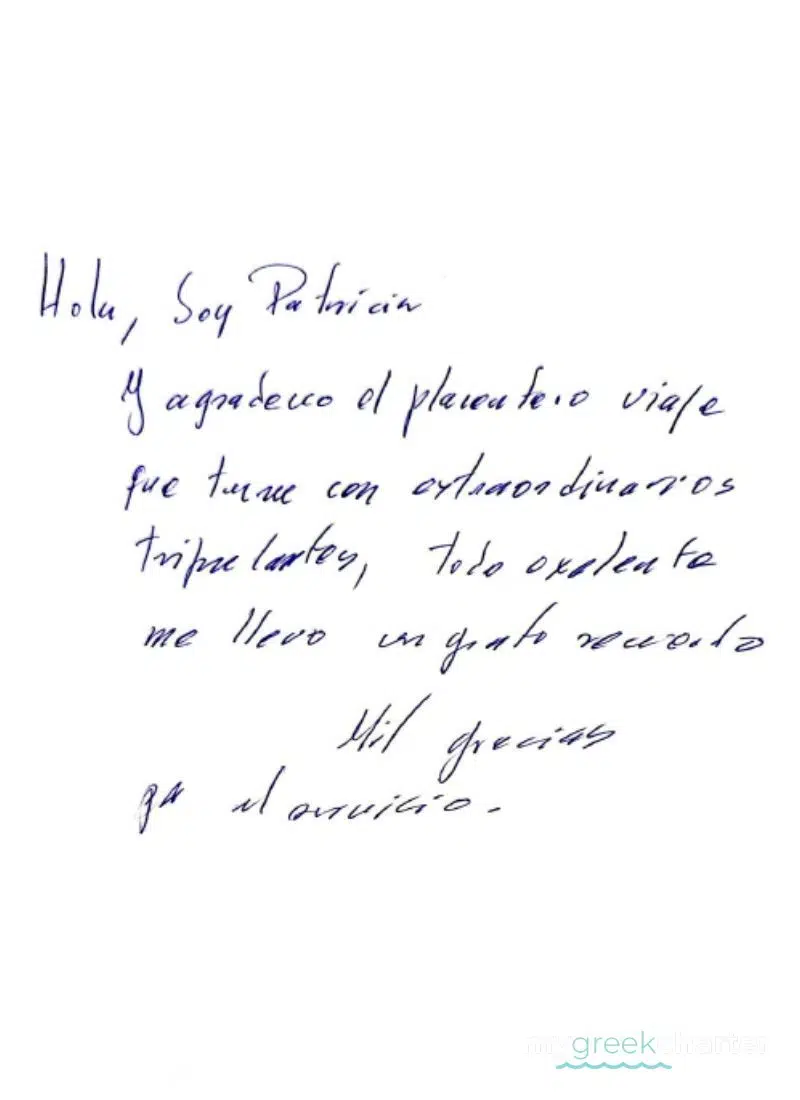 Hola, Soy Patricia
y agradezco el placentero viaje
que tuve con extraordinarios
tripulantes, todo exelente
me llevo un grato recuerdo
Mil gracias
el servicio.
mygreekcharter